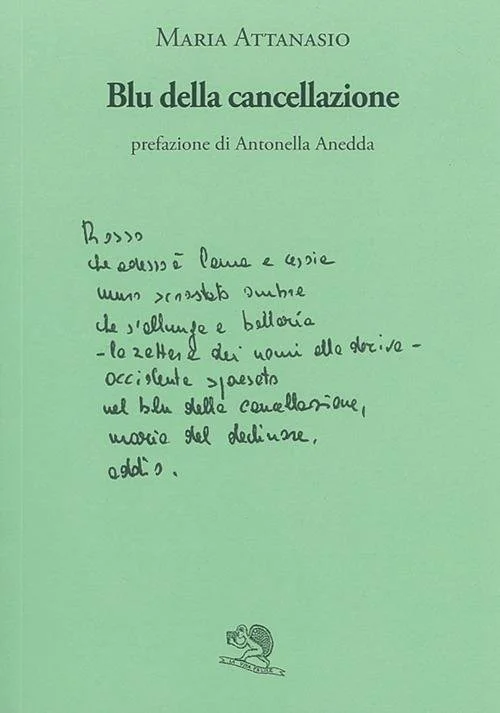 Maria Attanasio
Blu della cancellazione
prefazione di Antonella Anedda
Rosso
che adesso è lama e
muro scrostato ombre
che s'allunga e
- la zattera dei nomi alla deriva -
occidente spaesato
nel blu della cancellazione,
marcia del declinare,
addio.
LA VITA FELICE